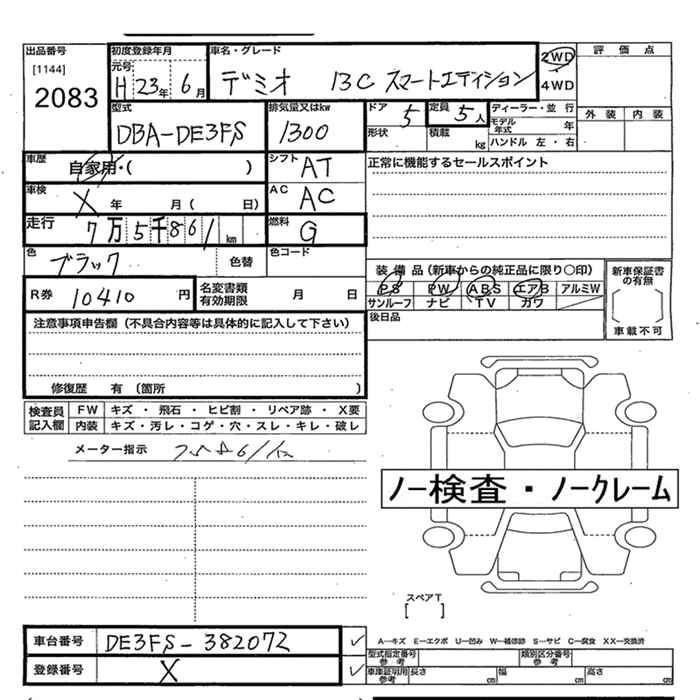 出品番号 初度登録年月 車名・グレード 2WD 評価点
[1144] 元号
2083 H 23年 6月 デミオ 13C スマートエディション 4WD
型式 排気量又はkw ドア 定員 ディーラー・並行 外装 内装
DBA-DE3FS 1300 5 5人 モデル年式 年
形状 積載 kg ハンドル 左・右
車歴 自家用・( ) シフト AT 正常に機能するセールスポイント
車検 X 年 月( 日) AC AC
走行 7万5千861km 燃料 G
色 ブラック 色替 色コード
装備品(新車からの純正品に限り○印) 新車保証書の有無
R券 10410円 名変書類有効期限 月 日 PS PW ABS エアB アルミW [ ]
サンルーフ ナビ TV カワ 車載不可
注意事項申告欄(不具合内容等は具体的に記入して下さい) 後日品
修復歴 有 (箇所 )
検査員記入欄 FW キズ・飛石・ヒビ割・リペア跡・X要
内装 キズ・汚レ・コゲ・穴・スレ・キレ・破レ
メーター指示
ノー検査・ノークレーム
スペアT
[ ]
車台番号 DE3FS-382072 ✓ A―キズ E―エクボ U―凹み W―補修跡 S―サビ C―腐食 XX―交換済
型式指定番号参考 類別区分番号参考
登録番号 X ✓ 車庫証明用参考 長さ cm 幅 cm 高さ cm